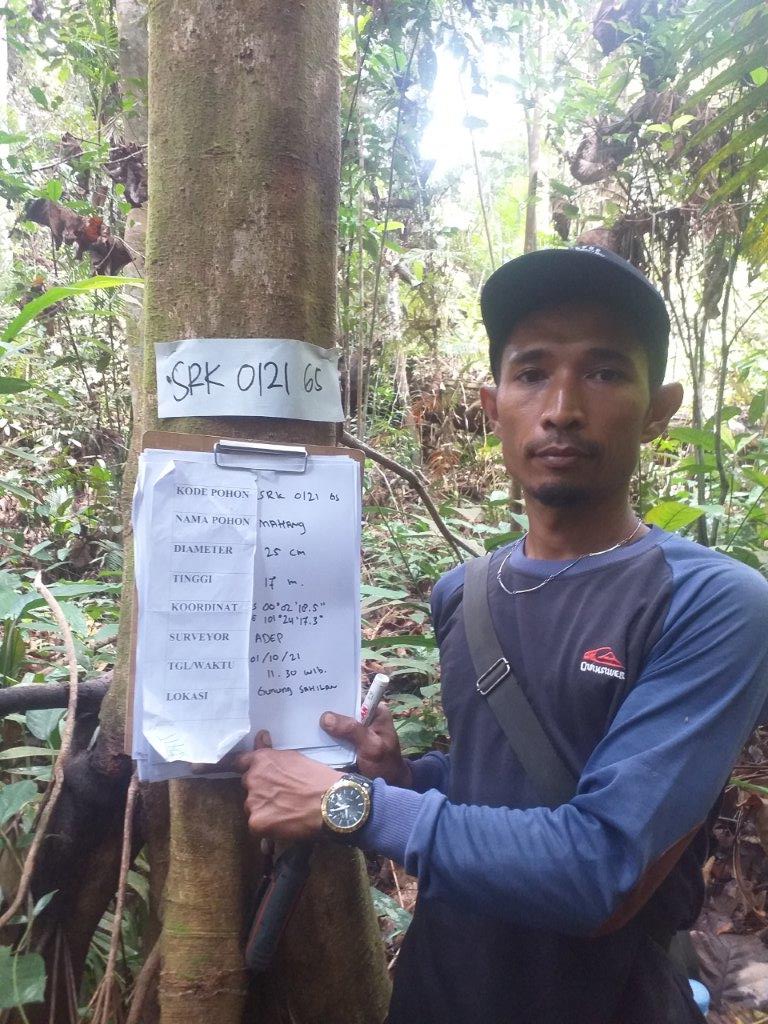 SRK 0121 65
KODE POHON SRK 0121 65
NAMA POHON MAHANG
DIAMETER 25 cm
TINGGI 17 m.
KOORDINAT S 00°02'18.5"
E 101°24'17.3"
SURVEYOR ADEP
TGL/WAKTU 01/10/21
11.30 WIB.
LOKASI GUNUNG SAHILAN
QUIKSILVER